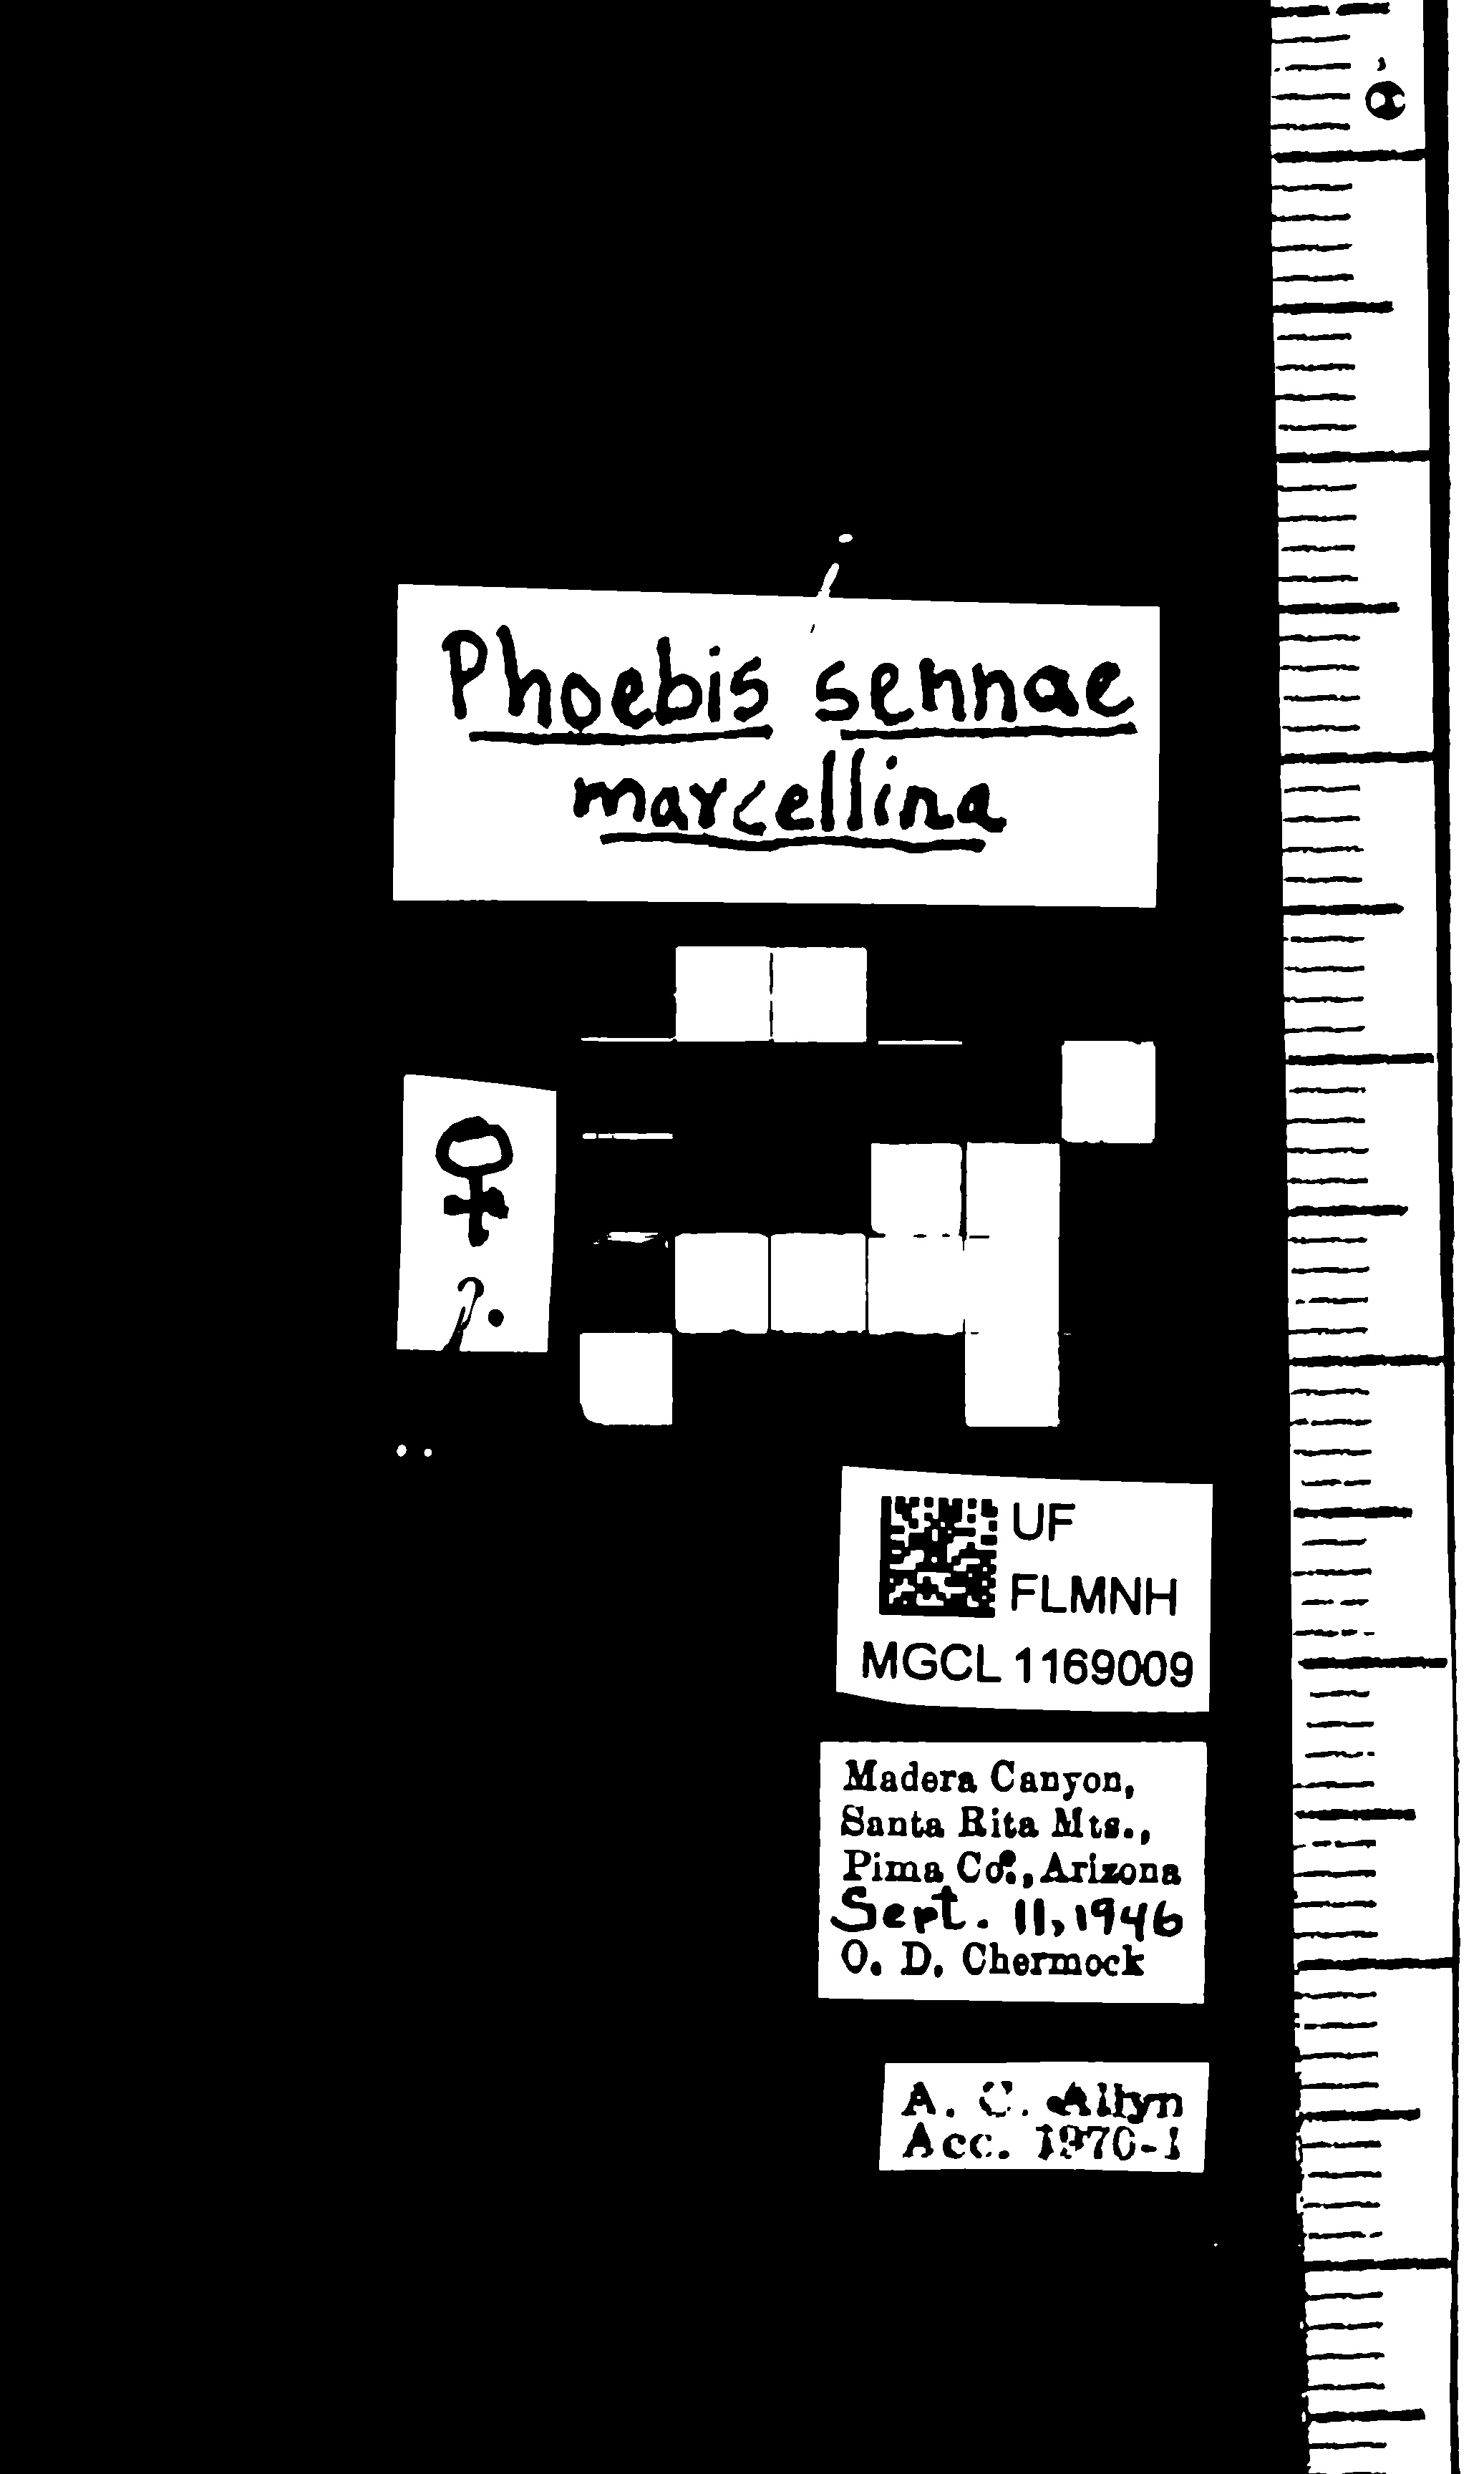 Phoebis sennae
marcellina
♀
?.
UF
FLMNH
MGCL 1169009
Madera Canyon,
Santa Rita Mts.,
Pima Co., Arizona
Sept. 11, 1946
O. D. Chermock
A. C. Allyn
Acc. 1970-1